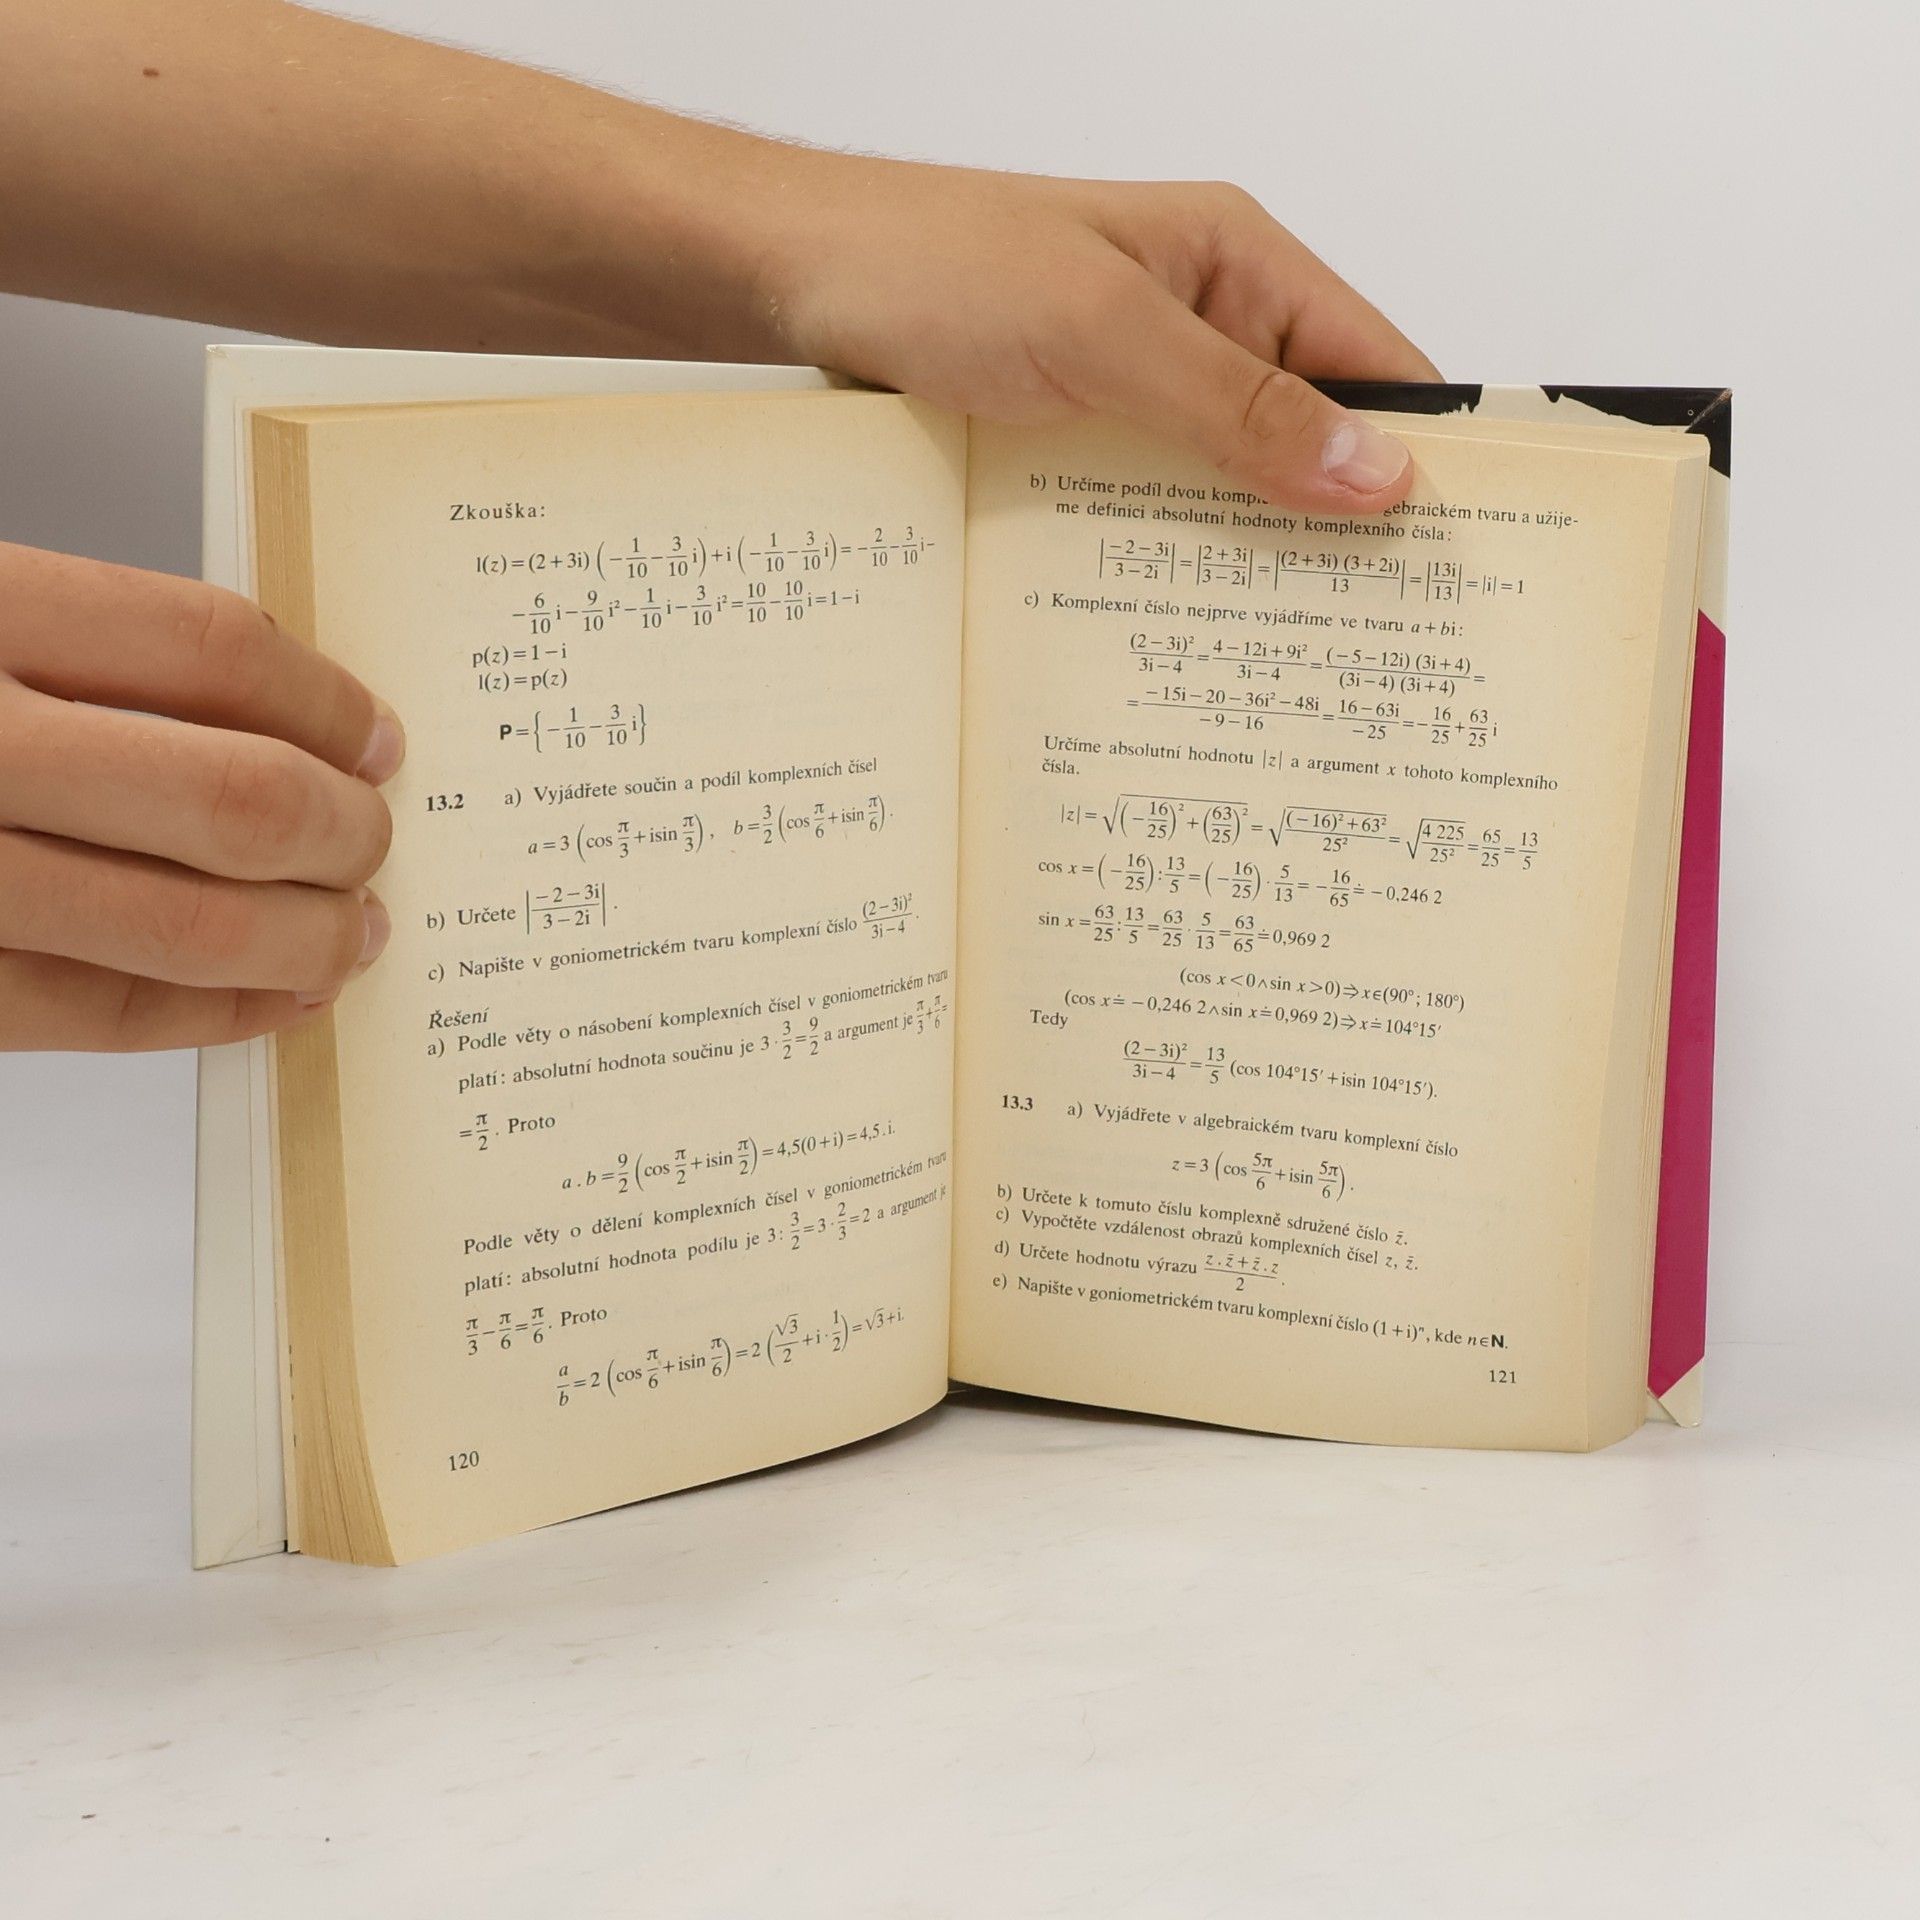 Zkouška:
l(z) = (2 + 3i) (−1/10 − 3/10 i) + i (−1/10 − 3/10 i) = −2/10 − 3/10 i −
−6/10 i − 9/10 i² − 1/10 i − 3/10 i² = 10/10 − 10/10 i = 1 − i
p(z) = 1 − i
l(z) = p(z)
P = {−1/10 − 3/10 i}
13.2 a) Vyjádřete součin a podíl komplexních čísel
a = 3 (cos π/3 + isin π/3), b = 3/2 (cos π/6 + isin π/6).
b) Určete |(−2 − 3i)/(3 − 2i)|.
c) Napište v goniometrickém tvaru komplexní číslo (2 − 3i)²/(3i − 4).
Řešení
a) Podle věty o násobení komplexních čísel v goniometrickém tvaru
platí: absolutní hodnota součinu je 3 · 3/2 = 9/2 a argument je π/3 + π/6 =
= π/2. Proto
a . b = 9/2 (cos π/2 + isin π/2) = 4,5(0 + i) = 4,5 . i.
Podle věty o dělení komplexních čísel v goniometrickém tvaru
platí: absolutní hodnota podílu je 3 : 3/2 = 3 · 2/3 = 2 a argument je
π/3 − π/6 = π/6. Proto
a/b = 2 (cos π/6 + isin π/6) = 2 (√3/2 + i · 1/2) = √3 + i.
120
b) Určíme podíl dvou tvaru a užije-
me definici absolutní hodnoty komplexního čísla:
|(−2 − 3i)/(3 − 2i)| = |(2 + 3i)/(3 − 2i)| = |(2 + 3i) (3 + 2i)/13| = |13i/13| = |i| = 1
c) Komplexní číslo nejprve vyjádříme ve tvaru a + bi:
(2 − 3i)²/(3i − 4) = (4 − 12i + 9i²)/(3i − 4) = (−5 − 12i) (3i + 4)/((3i − 4) (3i + 4)) =
= (−15i − 20 − 36i² − 48i)/(−9 − 16) = (16 − 63i)/(−25) = −16/25 + 63/25 i
Určíme absolutní hodnotu |z| a argument x tohoto komplexního
čísla.
|z| = √((−16/25)² + (63/25)²) = √(((−16)² + 63²)/25²) = √(4 225/25²) = 65/25 = 13/5
cos x = (−16/25) : 13/5 = (−16/25) · 5/13 = −16/65 ≐ −0,246 2
sin x = 63/25 : 13/5 = 63/25 · 5/13 = 63/65 ≐ 0,969 2
(cos x < 0 ∧ sin x > 0) ⇒ x ∈ (90°; 180°)
(cos x ≐ −0,246 2 ∧ sin x ≐ 0,969 2) ⇒ x ≐ 104°15′
Tedy
(2 − 3i)²/(3i − 4) = 13/5 (cos 104°15′ + isin 104°15′).
13.3 a) Vyjádřete v algebraickém tvaru komplexní číslo
z = 3 (cos 5π/6 + isin 5π/6).
b) Určete k tomuto číslu komplexně sdružené číslo z̄.
c) Vypočtěte vzdálenost obrazů komplexních čísel z, z̄.
d) Určete hodnotu výrazu (z . z̄ + z̄ . z)/2.
e) Napište v goniometrickém tvaru komplexní číslo (1 + i)ⁿ, kde n ∈ N.
121